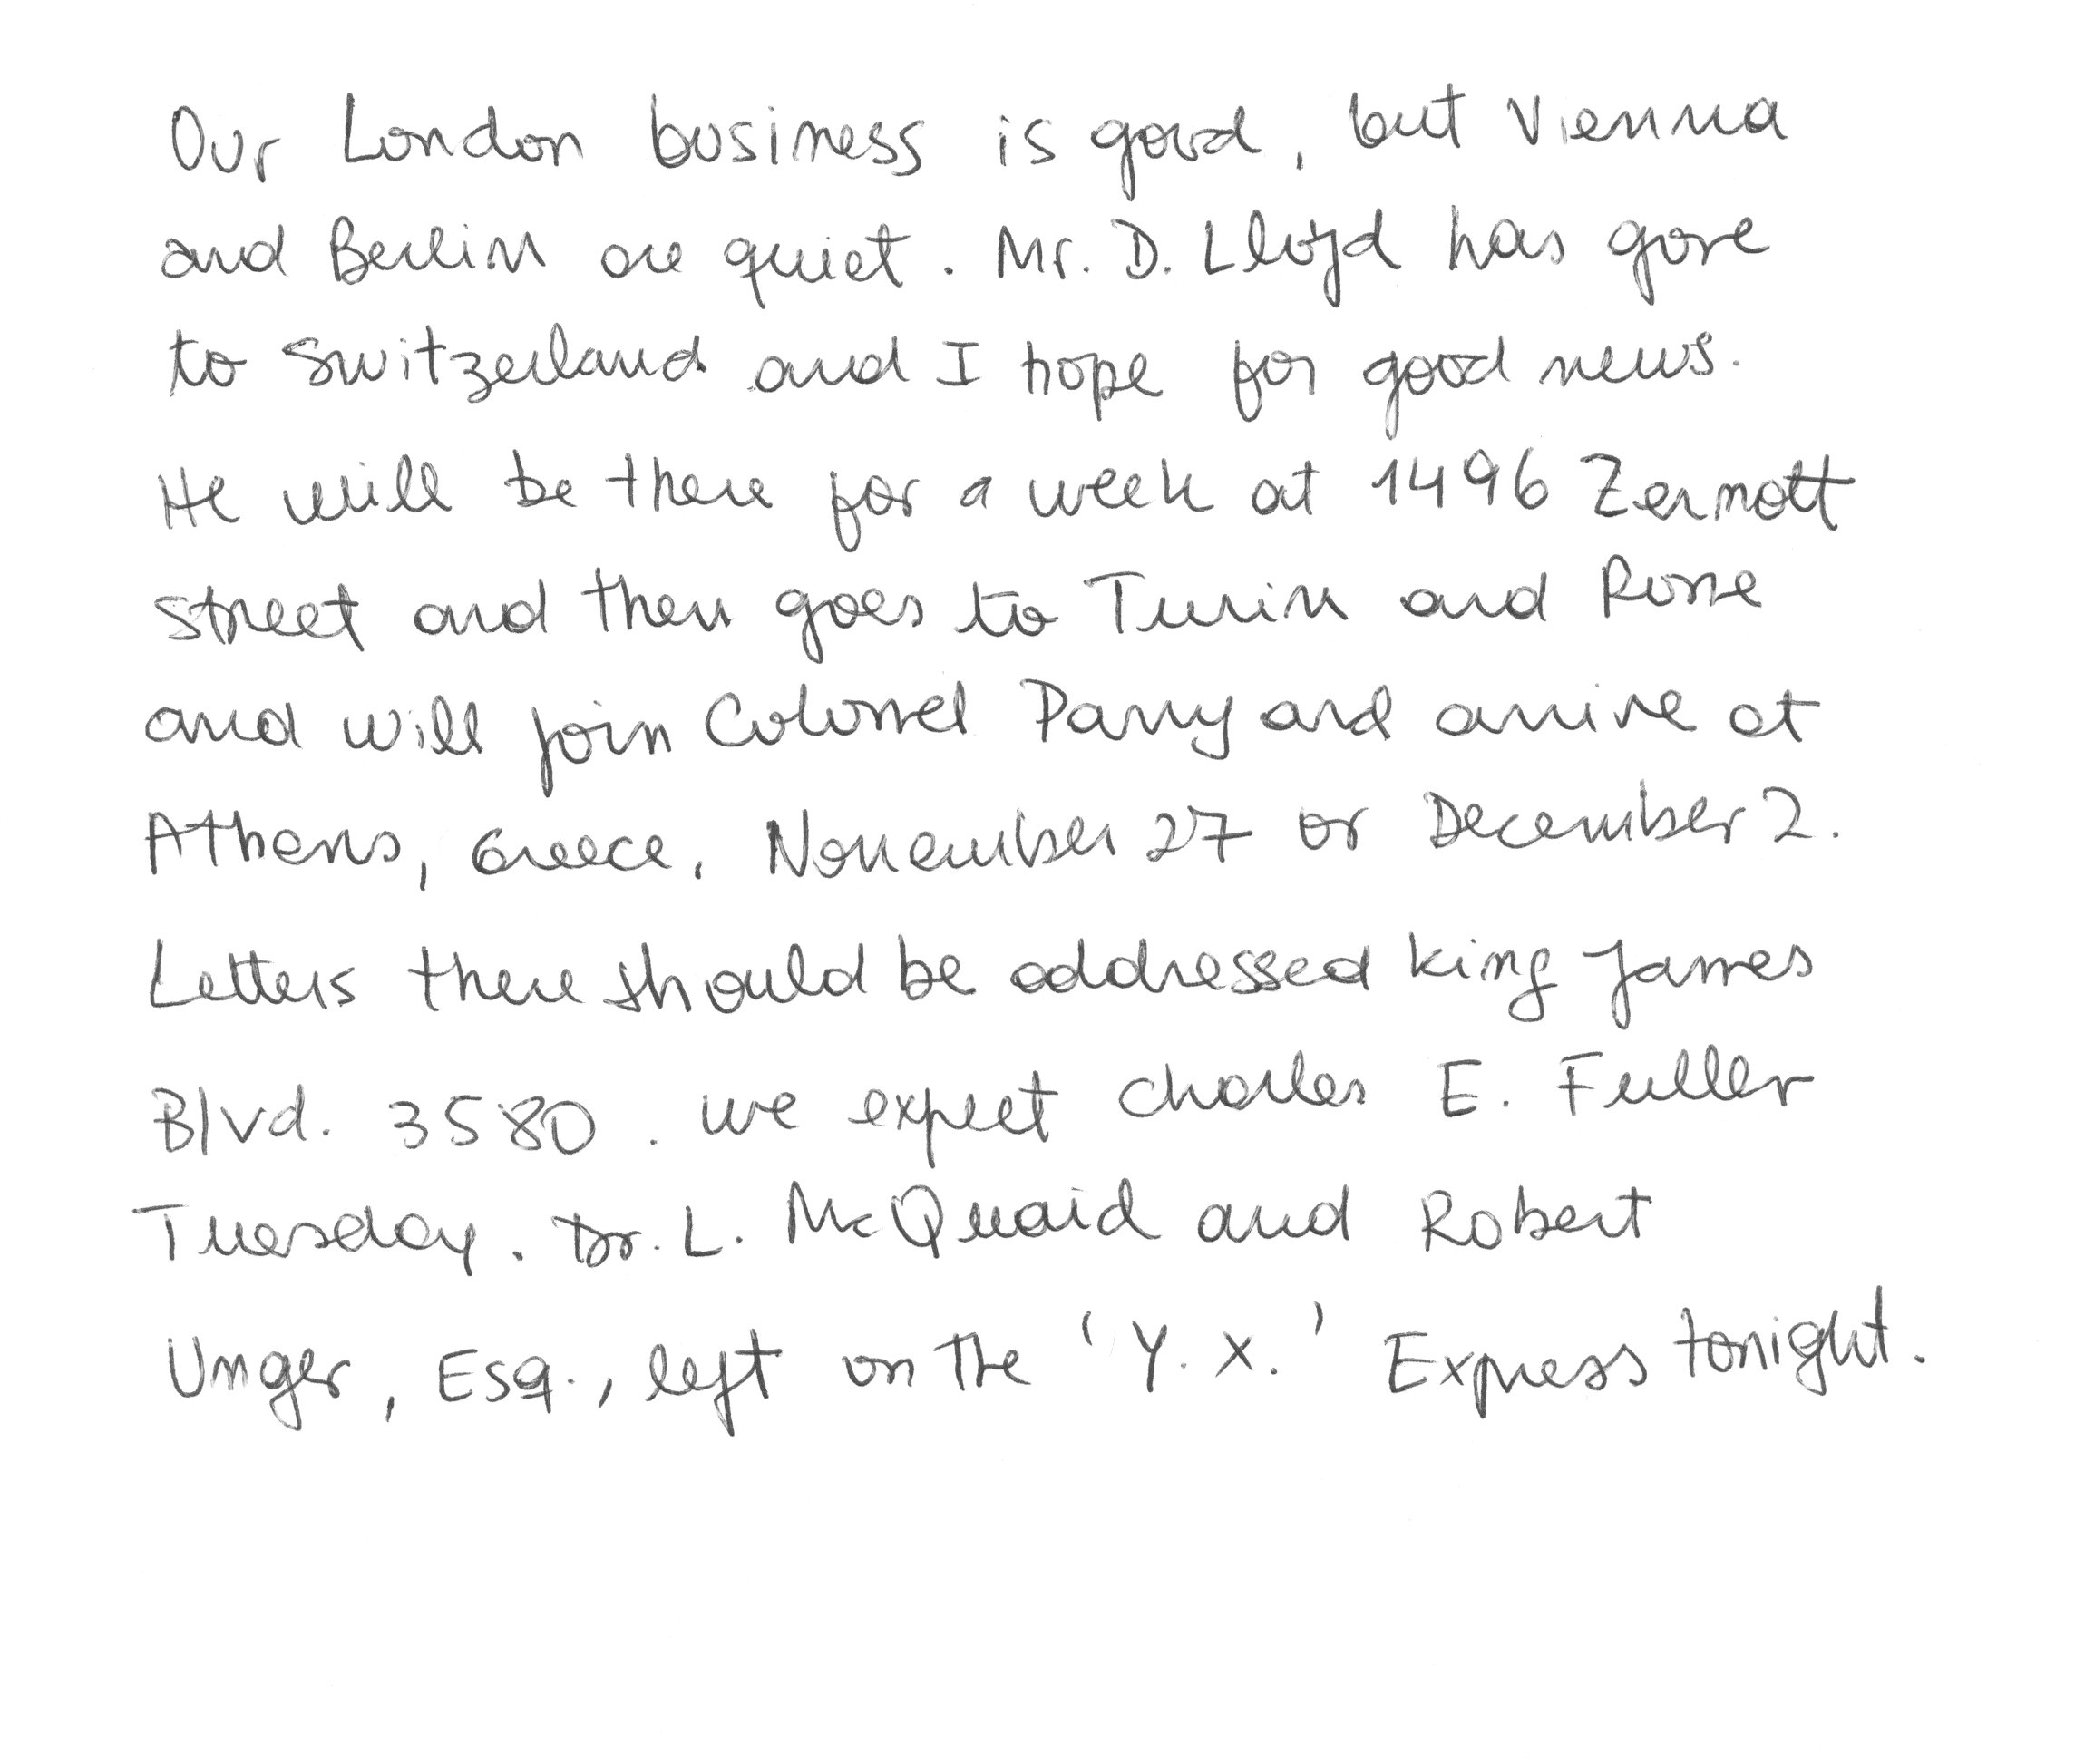 Our London business is good, but Vienna
and Berlin are quiet. Mr. D. Lloyd has gone
to Switzerland and I hope for good news.
He will be there for a week at 1496 Zermott
street and then goes to Turin and Rome
and will join Colonel Parry and arrive at
Athens, Greece, November 27 or December 2.
Letters there should be addressed King James
Blvd. 3580. we expect Charles E. Fuller
Tuesday. Dr. L. McQuaid and Robert
Unger, Esq., left on the 'Y. X.' Express tonight.